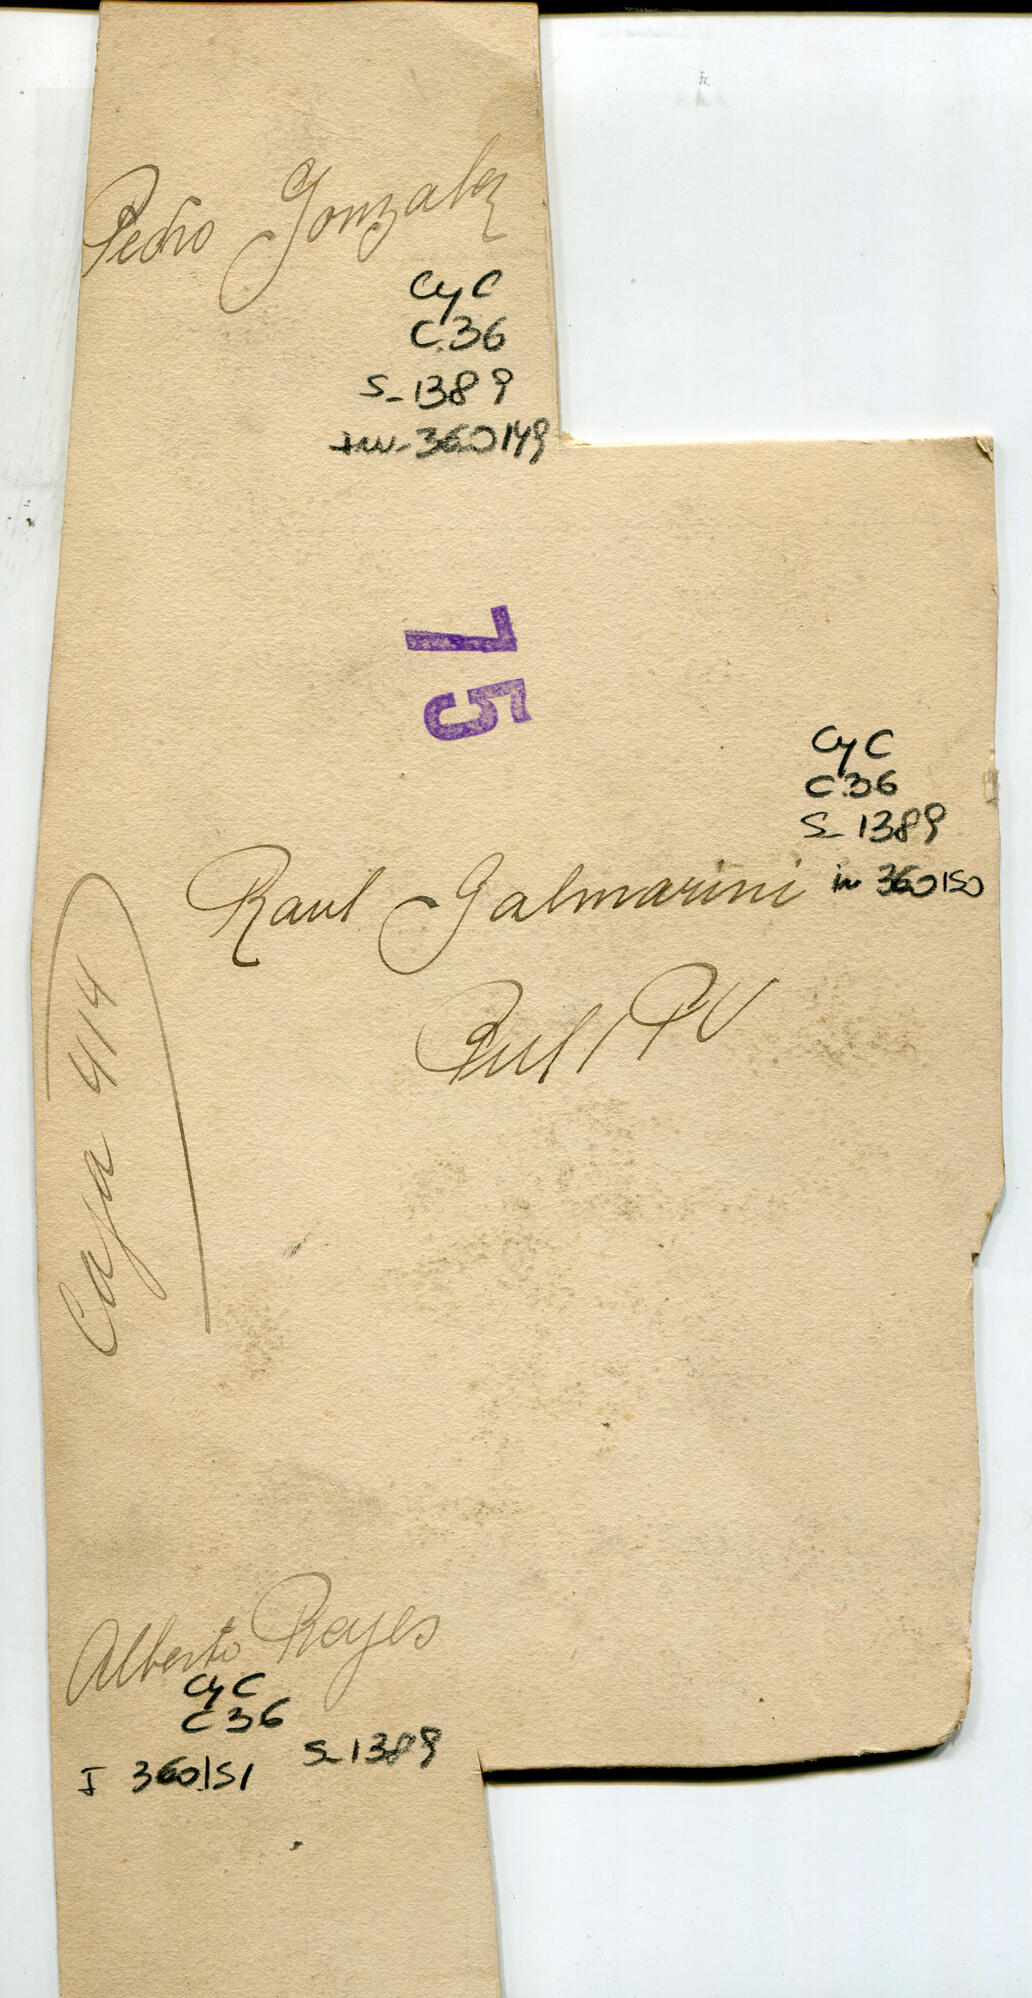 Pedro Gonzalez
CyC
C.36
S-1389
inv-360149
75
CyC
C36
S-1389
Raul Galmarini in 360150
Caja 414
Alberto Reyes
CyC
C36
S-1389
I 360151